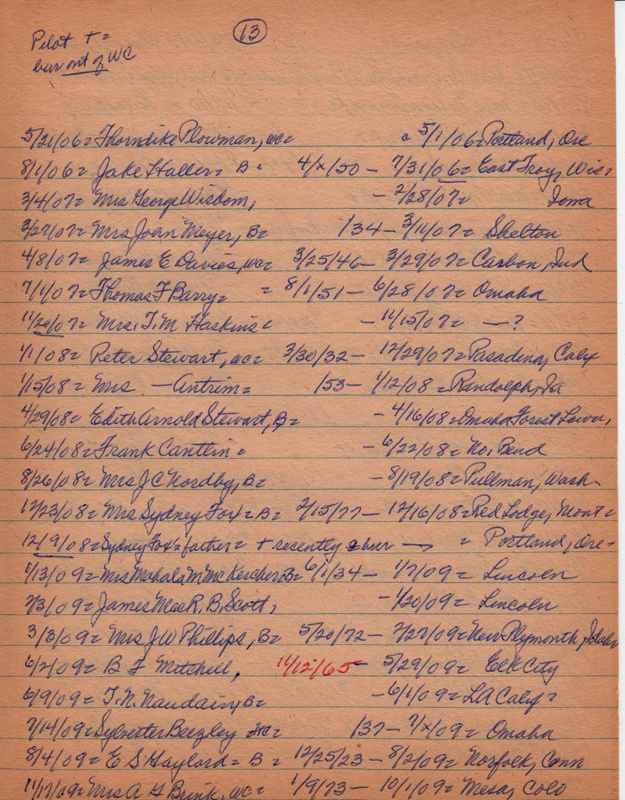 13
Pilot + =
bur out of WC
5/21/06 = Thorndike Plowman, wc = a 5/1/06 = Portland, Ore
8/1/06 = Jake Haller = B = 4/x/50 – 7/31/06 = East Troy, Wis =
3/4/07 = Mrs George Wisdom, – 2/28/07 = Iowa
3/27/07 = Mrs John Meyer, B = /34 – 3/14/07 = Shelton
4/8/07 = James E Davies, wc = 3/25/46 – 3/29/07 = Carbon, Ind
7/4/07 = Thomas F Barry = = 8/1/51 – 6/28/07 = Omaha
11/20/07 = Mrs. T. M Haskins = – 11/15/07 = — ?
1/1/08 = Peter Stewart, wc = 3/30/32 – 12/29/07 = Pasadena, Caly
1/15/08 = Mrs. — Antrim = /53 – 1/12/08 = Randolph, Ia
4/29/08 = Edith Arnold Stewart, B = – 4/16/08 = Omaha Forest Lawn,
6/24/08 = Frank Cantlin = – 6/22/08 = No. Bend
8/26/08 = Mrs J C Nordby, B = – 8/19/08 = Pullman, Wash.
12/23/08 = Mrs Sydney Fox = B = 2/15/77 – 12/16/08 = Red Lodge, Mont =
12/9/08 = Sydney Fox's father = + recently bur — = Portland, Ore –
1/13/09 = Mrs Mahala M McKercher B = 6/1/34 – 1/7/09 = Lincoln
2/3/09 = James Mac R. B. Scott, – 1/20/09 = Lincoln
3/3/09 = Mrs J W Phillips, B = 5/20/72 – 2/27/09 = New Plymouth, Idaho
6/2/09 = B F Mitchell, 11/12/65 – 5/29/09 = Elk City
6/9/09 = T. N. Naudain, B = – 6/1/09 = LA Caly =
7/14/09 = Sylvester Beezley = wc = /37 – 7/x/09 = Omaha
8/4/09 = E S Gaylord = B = 12/25/23 – 8/2/09 = Norfolk, Conn
11/17/09 = Mrs A G Brink, wc = 1/9/73 – 10/1/09 = Mesa, Colo